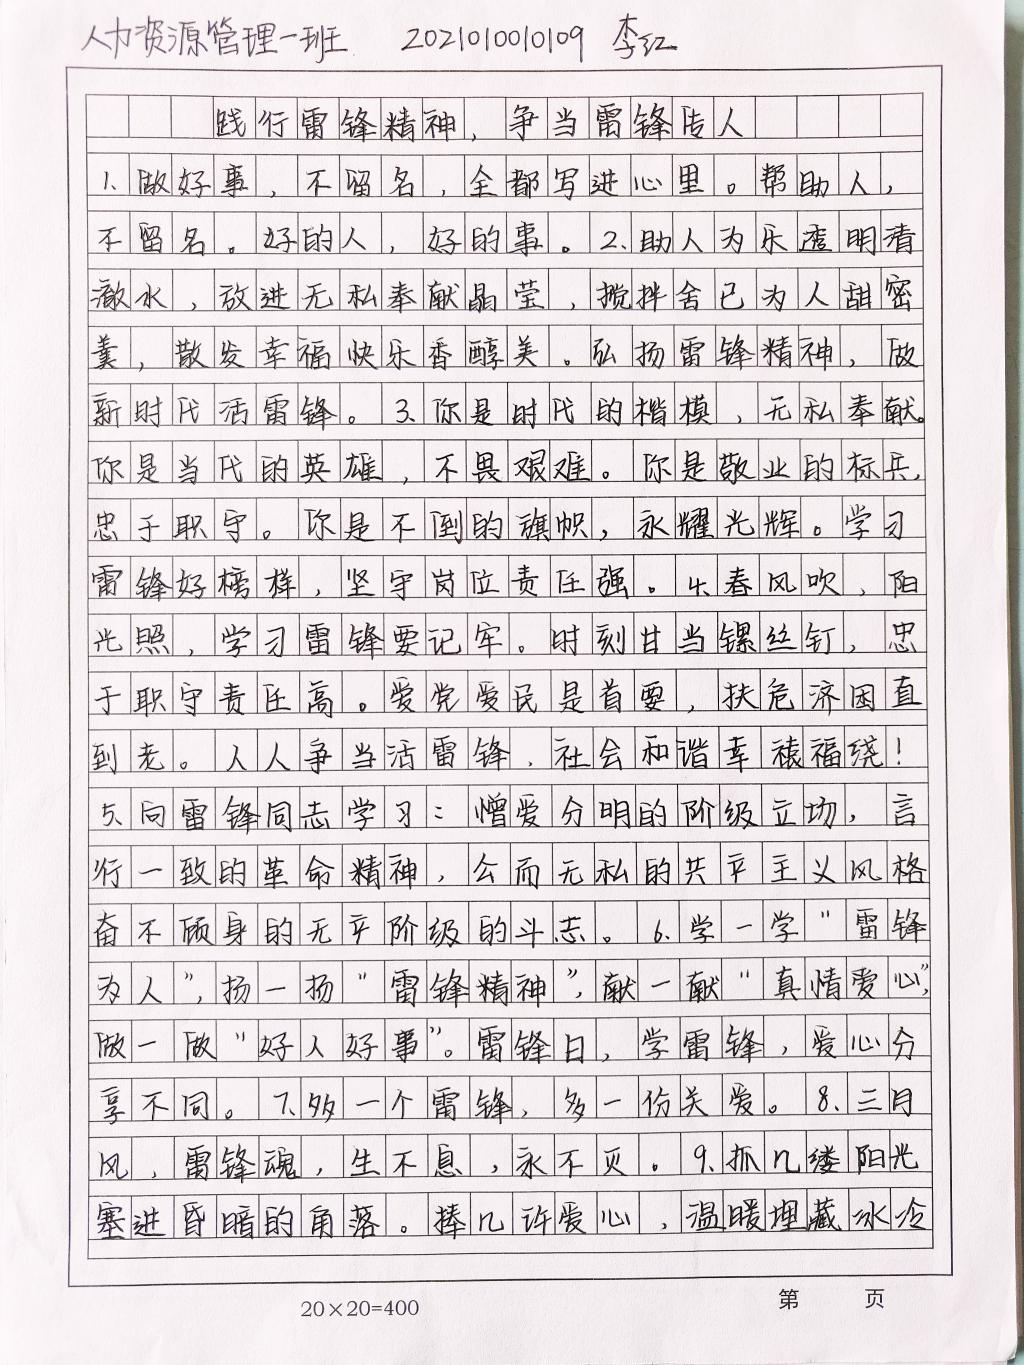 人力资源管理一班 2021010010109 李红
践行雷锋精神，争当雷锋传人
1、做好事，不留名，全都写进心里。帮助人，
不留名。好的人，好的事。2、助人为乐透明清
澈水，放进无私奉献晶莹，搅拌舍己为人甜密
羹，散发幸福快乐香醇美。弘扬雷锋精神，做
新时代活雷锋。3、你是时代的楷模，无私奉献。
你是当代的英雄，不畏艰难。你是敬业的标兵，
忠于职守。你是不倒的旗帜，永耀光辉。学习
雷锋好榜样，坚守岗位责任强。4、春风吹，阳
光照，学习雷锋要记牢。时刻甘当镙丝钉，忠
于职守责任高。爱党爱民是首要，扶危济困直
到老。人人争当活雷锋，社会和谐幸禧福绕！
5、向雷锋同志学习：憎爱分明的阶级立场，言
行一致的革命精神，公而无私的共产主义风格
奋不顾身的无产阶级的斗志。6、学一学“雷锋
为人”，扬一扬“雷锋精神”，献一献“真情爱心”，
做一做“好人好事”。雷锋日，学雷锋，爱心分
享不同。7、多一个雷锋，多一份关爱。8、三月
风，雷锋魂，生不息，永不灭。9、抓几缕阳光
塞进昏暗的角落。捧几许爱心，温暖埋藏冰冷
20×20=400
第 页